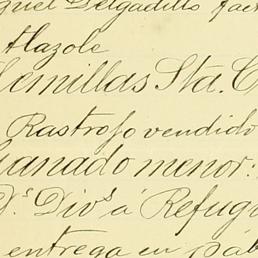 guel Delgadillo fac
tlazole
Semillas Sta. C
Rastrojo vendido
Ganado menor:
D.s Div.s á Refug
entrega en páb